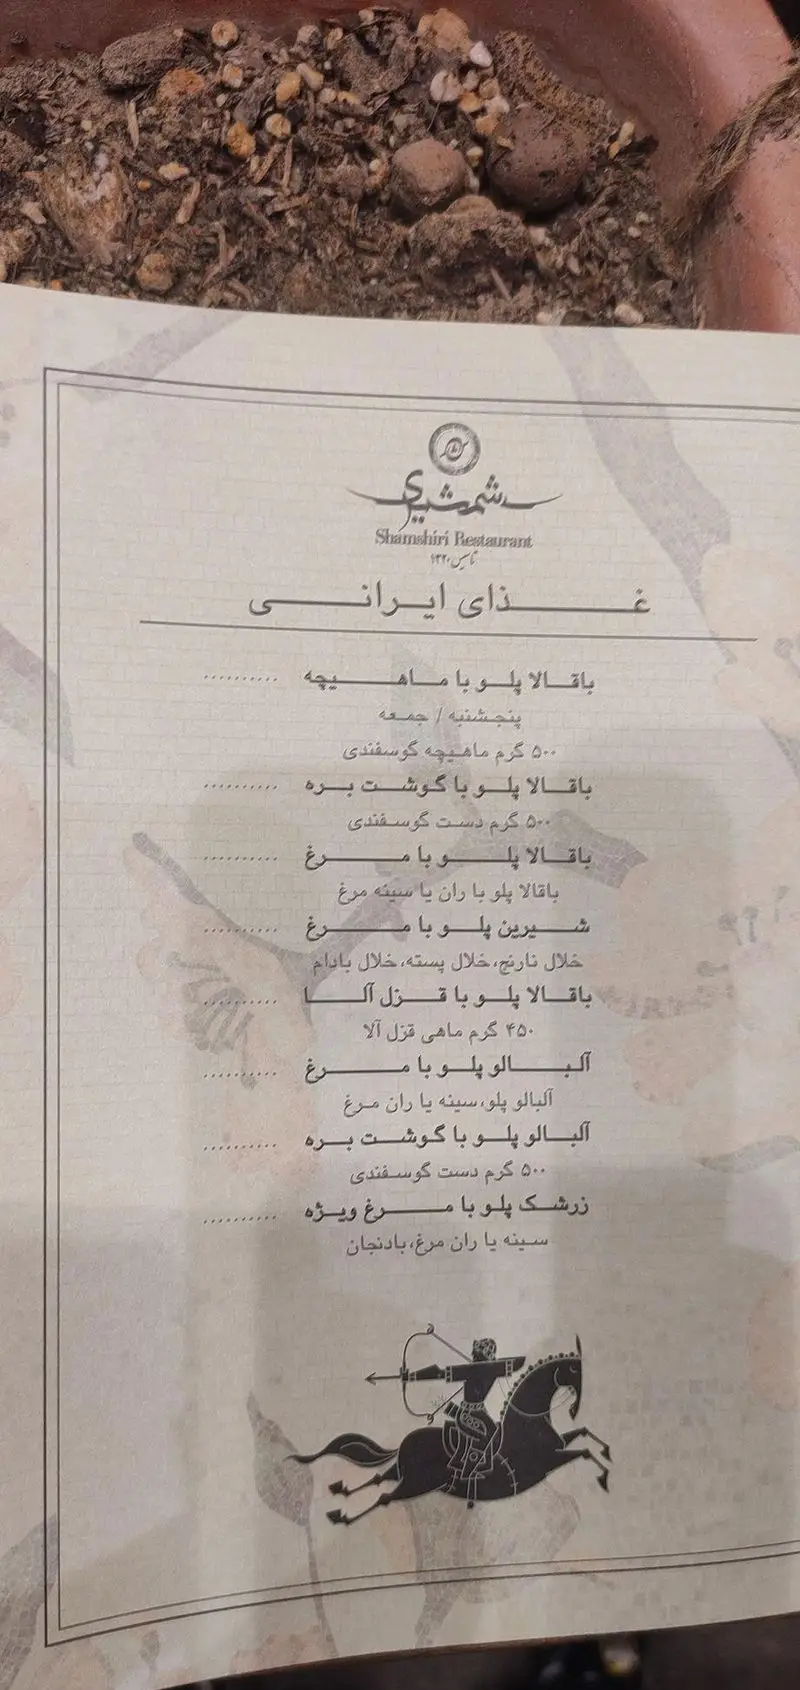 شمشیری
Shamshiri Restaurant
تاسیس ۱۳۲۰
غذای ایرانی
باقالا پلو با ماهیچه ..........
پنجشنبه / جمعه
۵۰۰ گرم ماهیچه گوسفندی
باقالا پلو با گوشت بره ..........
۵۰۰ گرم دست گوسفندی
باقالا پلو با مرغ ..........
باقالا پلو با ران یا سینه مرغ
شیرین پلو با مرغ ..........
خلال نارنج، خلال پسته، خلال بادام
باقالا پلو با قزل آلا ..........
۴۵۰ گرم ماهی قزل آلا
آلبالو پلو با مرغ ..........
آلبالو پلو، سینه یا ران مرغ
آلبالو پلو با گوشت بره ..........
۵۰۰ گرم دست گوسفندی
زرشک پلو با مرغ ویژه ..........
سینه یا ران مرغ، بادنجان